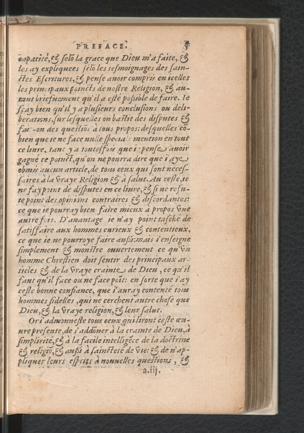 PREFACE. 5
capacité, & selõ la grace que Dieu m'a faite, &
les ay expliquez selõ les tesmoignages des sain-
ctes Escritures, & pense avoir compris en icelles
les principaux poincts de nostre Religion, & au-
tant briefuement qu'il a esté possible de faire. Ie
sçay bien qu'il y a plusieurs conclusions ou deli-
berations, sur lesquelles on bastit des disputes &
des questiõs à tous propos: desquelles cõ-
bien que ne face nulle mention en tout
ce liure, tant y a toutesfois que i pense avoir
gagné ce poinct, qu'on ne pourra dire que i'aye
obmis aucun article, de tous ceux qui sont neces-
saires à la vraye Religion & à salut. Au reste, ie
ne fay point de disputes en ce liure, & si ne refu-
te point des opinions contraires & discordantes:
ce que ie pourray bien faire mieux à propos vne
autre fois. D'auantage ie n'ay point tasché de
satisfaire aux hommes curieux & contentieux,
ce que ie ne pourroye faire aussi: mais i'enseigne
simplement & monstre ouuertement ce qu'vn
homme Chrestien doit sentir des principaux ar-
ticles & de la vraye crainte de Dieu, ce qu'il
faut qu'il face ou ne face point: en sorte que i'ay
ceste bonne confiance, que i'auray contenté tous
hommes fidelles, qui ne cerchent autre chose que
Dieu, & la vraye religion, & leur salut.
Or i'admonneste tous ceux qui liront ceste œu-
ure presente, de s'addõner à la crainte de Dieu, à
simplicité, & à la facile intelligẽce de la doctrine
& religiõ, & aussi à saincteté de vie: & de n'ap-
pliquer leurs esprits à nouuelles questions, &
a.iij.